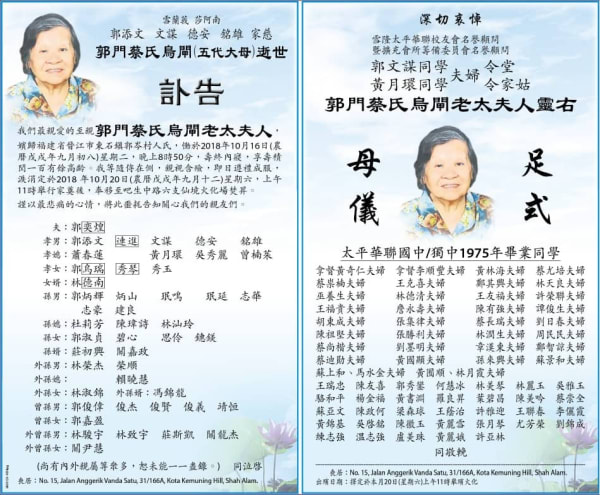 雪蘭莪 莎阿南
郭添文 文謀 德安 銘雄 家慈
郭門蔡氏烏閙(五代大母)逝世
訃告
我們最親愛的至親郭門蔡氏烏閙老太夫人,
嬪歸福建省晉江市東石鎮郭岑村人氏,慟於2018年10月16日(農
曆戊戌年九月初八)星期二,晚上8時50分,壽終內寢,享壽積
閏一百有餘高齡。我等隨侍在側,親視含殮,即日遵禮成服,
涓定於2018 年10月20日(農曆戊戌年九月十二)星期六,上午
11時舉行家奠後,奉移至吧生中路六支仙境火化場焚昇。
謹以最悲痛的心情,將此噩耗告知關心我們的親友們。
夫:郭奕煌
孝男:郭添文 連進 文謀 德安 銘雄
孝媳:蕭春蓮 黃月環 吳秀麗 曾楠菜
孝女:郭烏瑞 秀琴 秀玉
女婿:林德南
孫男:郭炳輝 炳山 珉鳴 珉延 志華
志豪 建良
孫媳:杜莉芳 陳瑋詩 林汕玲
孫女:郭淑貞 碧心 思伶 鏸鎂
孫婿:莊初興 關嘉政
外孫男:林榮杰 榮順
外孫媳: 賴曉慧
外孫女:林淑錦 外孫婿:馮錦龍
曾孫男:郭俊偉 俊杰 俊賢 俊義 靖恒
曾孫女:郭嘉盈
外曾孫男:林駿宇 林致宇 莊斯凱 關龍杰
外曾孫女:關尹慧
(尚有內外親屬等衆多,恕未能一一盡錄。) 同泣啓
喪居:No. 15, Jalan Anggerik Vanda Satu, 31/166A, Kota Kemuning Hill, Shah Alam.
深切哀悼
雪隆太平華聯校友會名譽顧問
暨擴充會所籌備委員會名譽顧問
郭文謀同學 夫婦 令堂
黃月環同學 令家姑
郭門蔡氏烏閙老太夫人靈右
母儀 足式
太平華聯國中/獨中1975年畢業同學
拿督黃奇仁夫婦 拿督李順豐夫婦 黃林海夫婦 蔡尤培夫婦
蔡崇楠夫婦 王克喜夫婦 鄭其興夫婦 林見良夫婦
巫養生夫婦 林德清夫婦 王友福夫婦 許榮聯夫婦
王福貴夫婦 詹永壽夫婦 陳有強夫婦 謝俊生夫婦
胡東成夫婦 張集律夫婦 蔡長瑞夫婦 劉日春夫婦
陳祖堅夫婦 張勝利夫婦 林潤生夫婦 周民民夫婦
蔡尚楷夫婦 劉墨明夫婦 章漢東夫婦 鄭智諒夫婦
蔡迪勛夫婦 黃國顯夫婦 孫來興夫婦 蘇景和夫婦
蘇上和、馬水金夫婦 黃國順、林月霞夫婦
王瑞忠 陳友喜 郭秀鑾 何慧冰 林美琴 林麗玉 吳雅玉
駱和平 楊金福 黃書淵 羅良昇 葉碧昌 陳美吟 蔡崇全
蘇亞文 陳政何 梁森球 王蔭治 許雅迎 王聯春 李儷霞
黃錦基 吳啓銘 陳徽玉 黃麗雪 張月琴 尤芳榮 劉錦成
練志强 溫志强 盧美珠 黃麗娥 許亚林
同敬輓
喪居:No. 15, Jalan Anggerik Vanda Satu, 31/166A, Kota Kemuning Hill, Shah Alam.
出殯日期:擇定於本月20日(星期六)上午11時舉殯火化